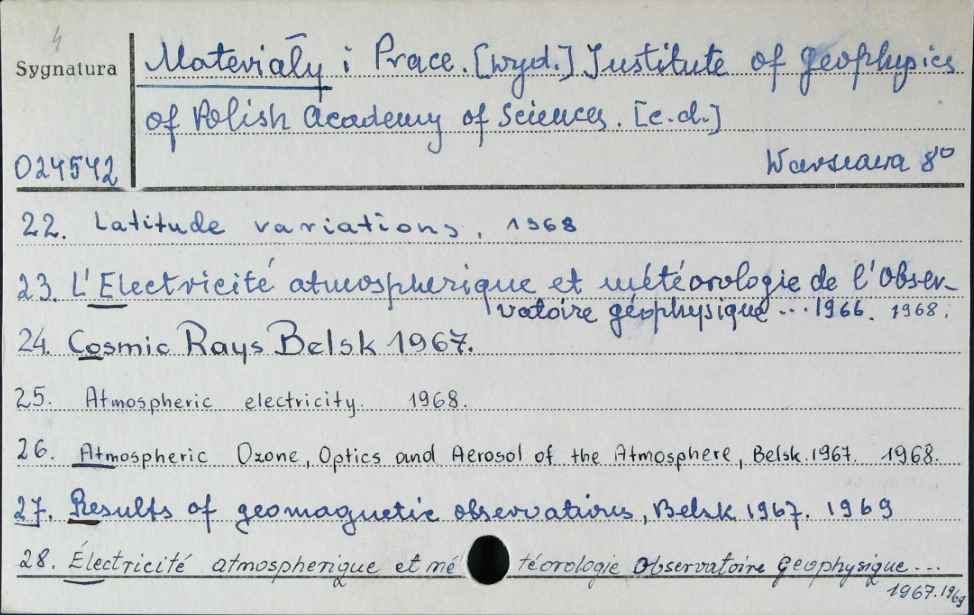 4
Sygnatura
Materiały i Prace. [wyd.] Institute of Geophysics
of Polish Academy of Sciences. [c.d.]
024542
Warszawa 8°
22. Latitude variations, 1968
23. L'Electricité atmospherique et météorologie de l'Obser-
vatoire géophysique ... 1966. 1968.
24. Cosmic Rays Belsk 1967.
25. Atmospheric electricity. 1968.
26. Atmospheric Ozone, Optics and Aerosol of the Atmosphere, Belsk. 1967. 1968.
27. Results of geomagnetic observations, Belsk 1967. 1969
28. Électricité atmospherique et mé téorologie Observatoire Geophysique...
1967. 1969